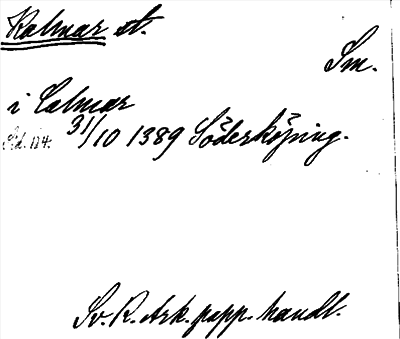 Kalmar st.
Sm.
i Calmar
31/10 1389 Söderköping.
Sv. R. Ark. papp. handl.